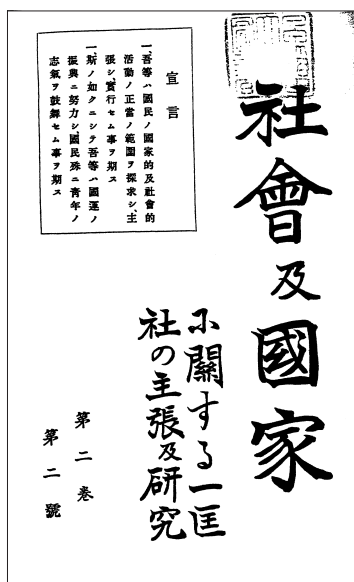 社會及國家
に關する一匡
社の主張及研究
宣言
一、吾等ハ國民ノ國家的及社會的
活動ノ正當ノ範圍ヲ探求シ、主
張シ、實行セム事ヲ期ス
一、斯ノ如クニシテ吾等ハ國運ノ
振興ニ努力シ國民殊ニ青年ノ
志氣ヲ鼓舞セム事ヲ期ス
第二卷
第二號